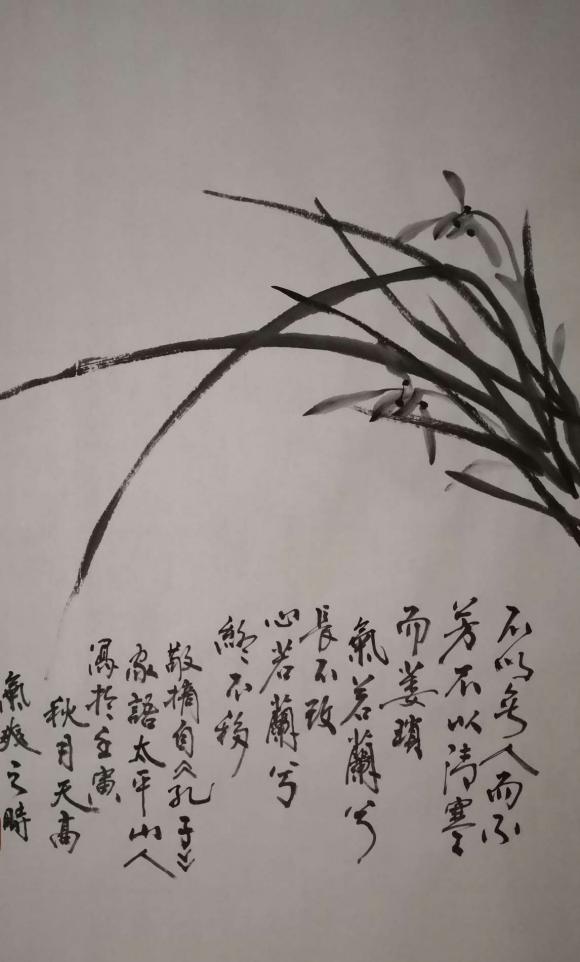 不以无人而不
芳不以清寒
而萎琐
氣若蘭兮
長不改
心若蘭兮
終不移
敬摘自《孔子》
家語太平山人
寫於壬寅
秋月天高
氣爽之時